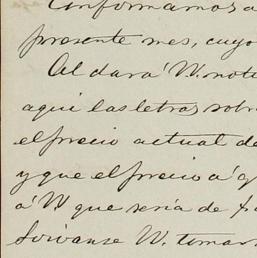 Conformamos a
presente mes, cuyo
Al dar á V. noti
aqui las letras sobr
el precio actual de
y que el precio á q
á V. que seria de
Sirvanse V. tomar